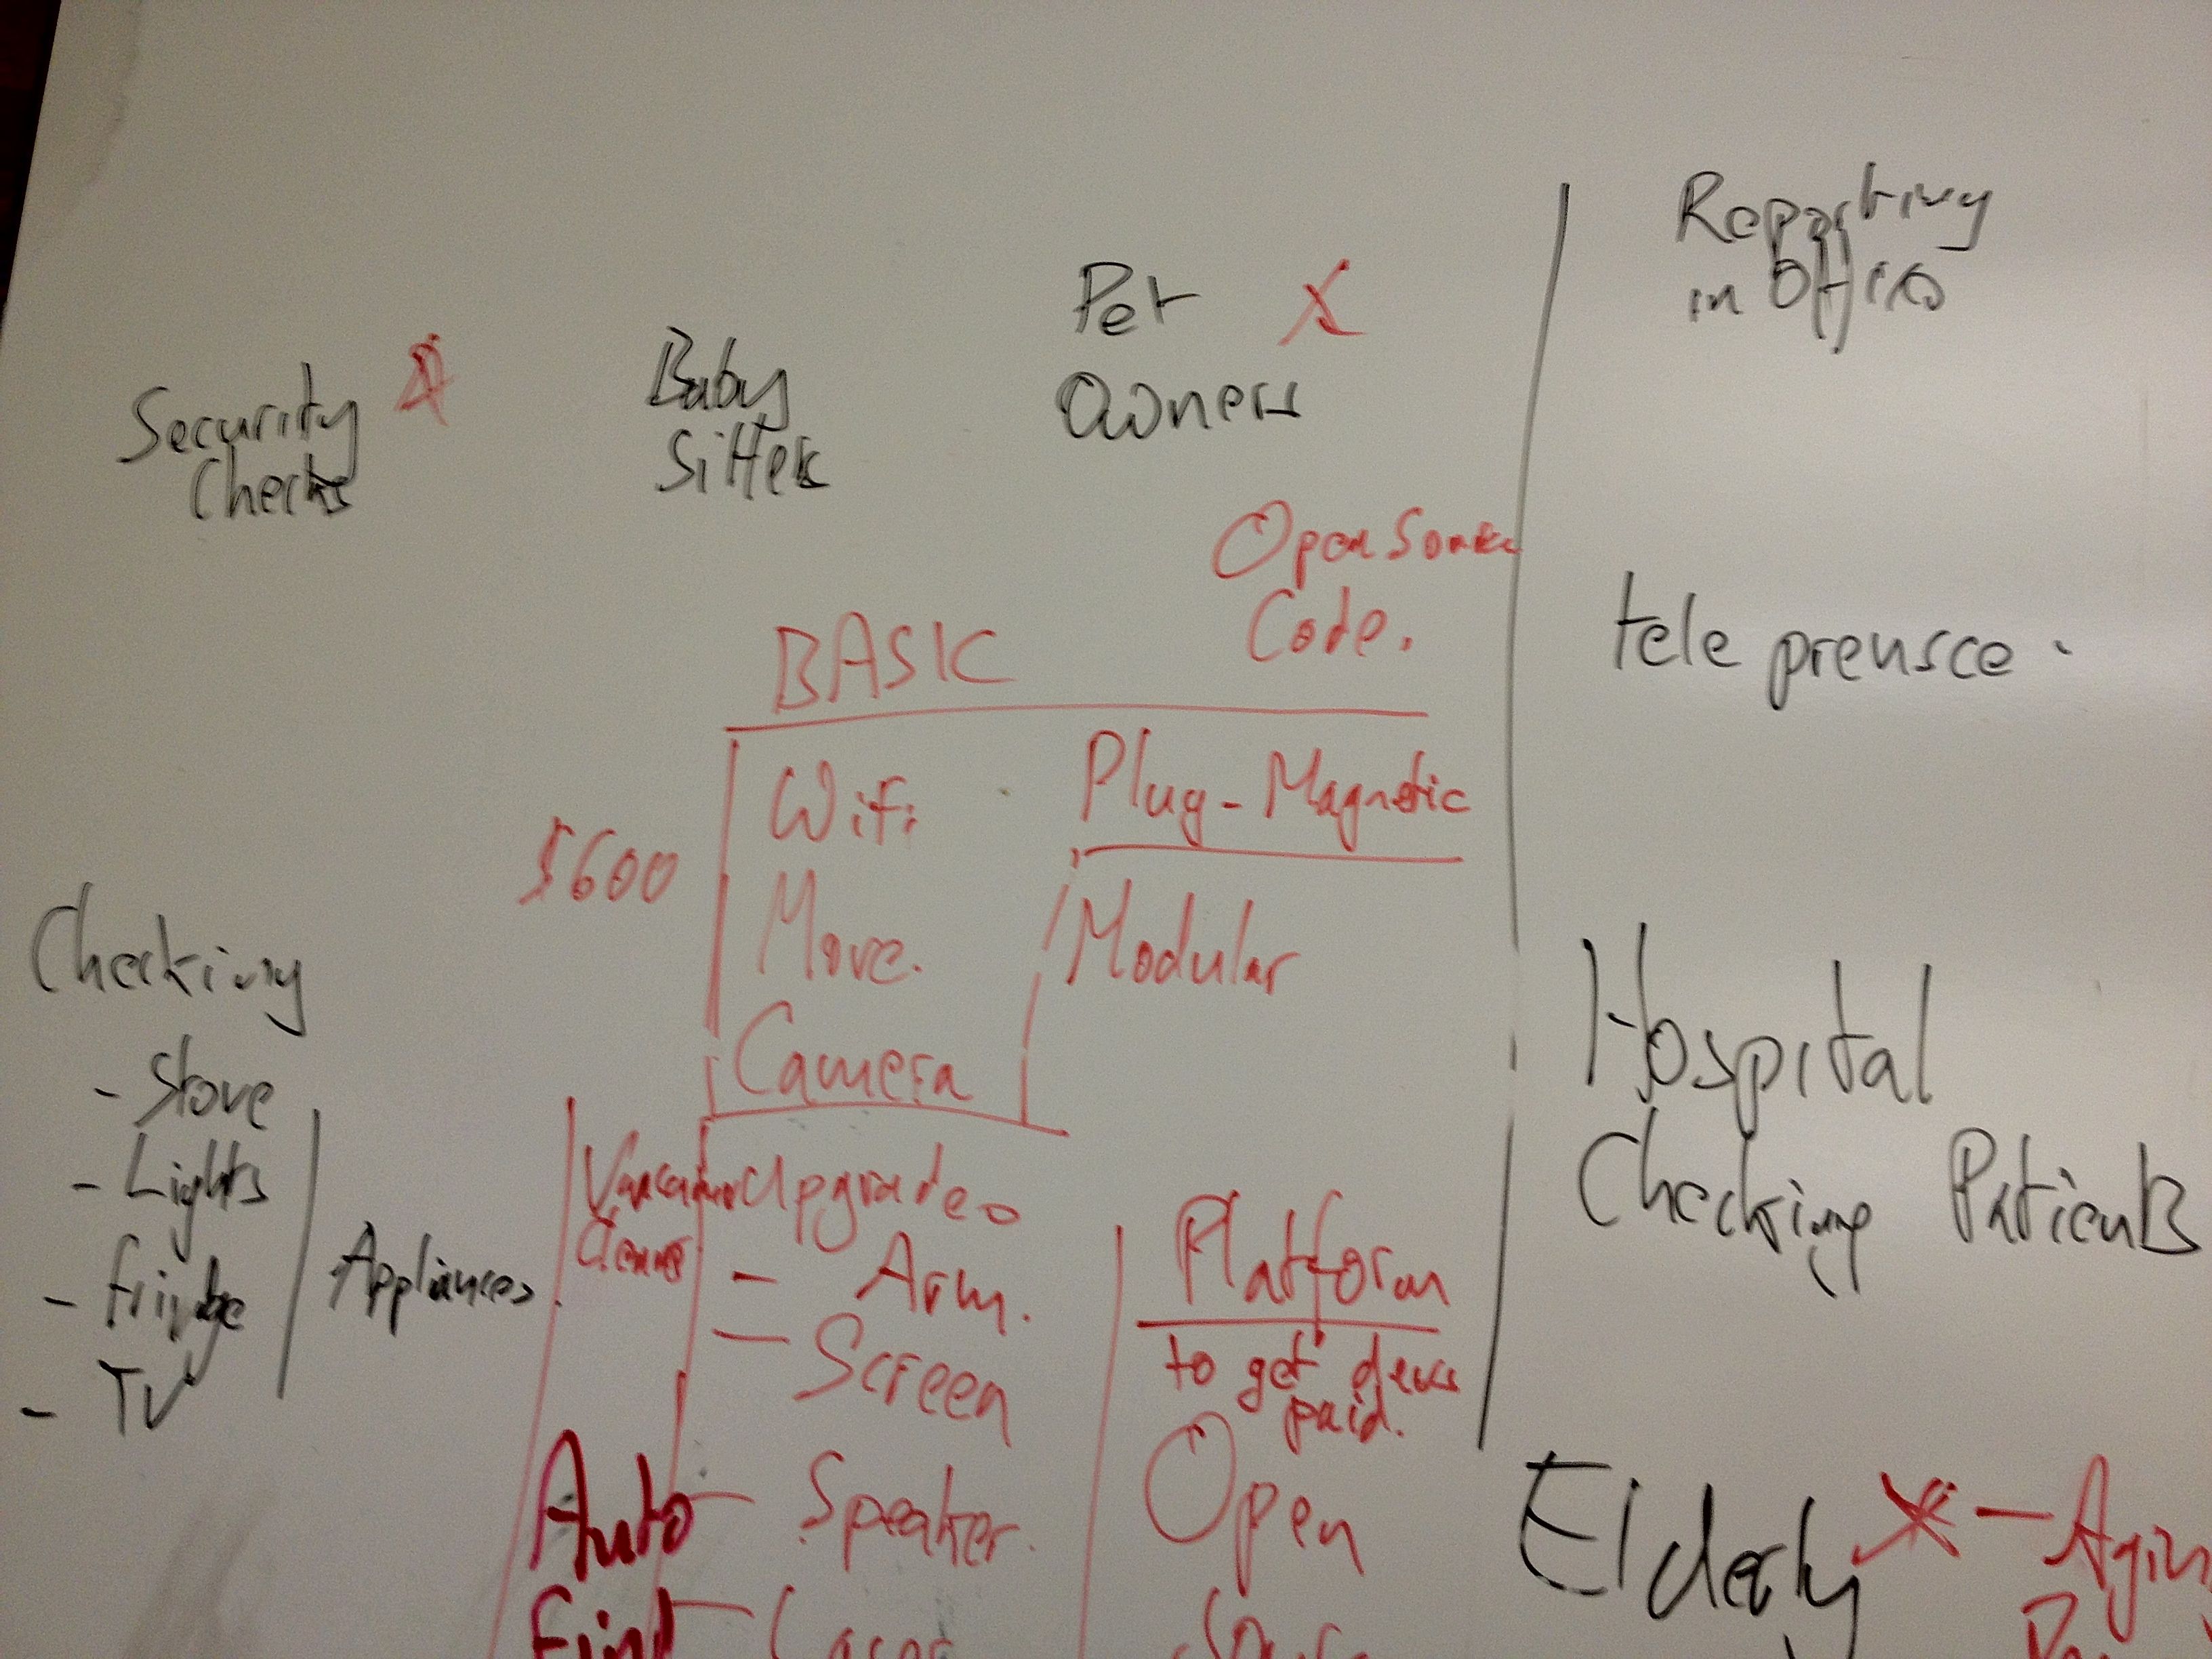 Security
Checks
Baby
Sitters
Pet X
Owners
Reporting
in Office
Open Source
Code.
tele prensce.
BASIC
$600
Wifi
Move.
Camera
Plug - Magnetic
Modular
Checking
- Stove
- Lights
- Frindge
- TV
Appliances.
Hospital
Checking Patients
Upgrades
- Arm.
- Screen
- Speaker.
Platform
to get devs
paid.
Open
Auto
Find
Elderly X -